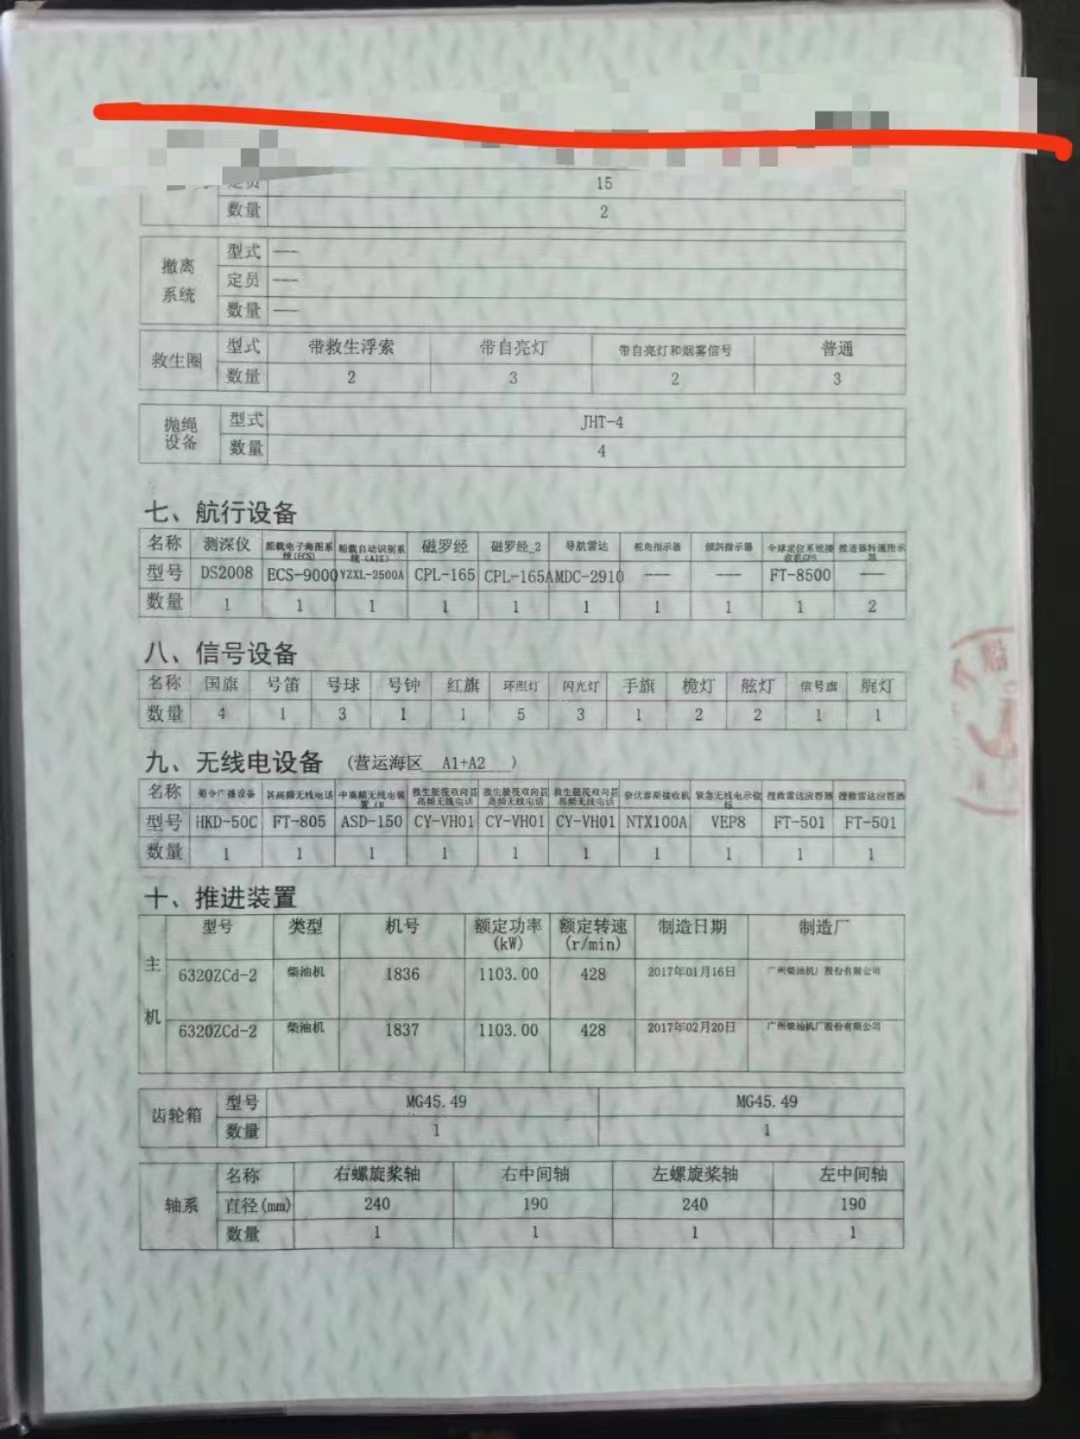 定员 15
数量 2
撤离系统 型式 ---
定员 ---
数量 ---
救生圈 型式 带救生浮索 带自亮灯 带自亮灯和烟雾信号 普通
数量 2 3 2 3
抛绳设备 型式 JHT-4
数量 4
七、航行设备
名称 测深仪 船载电子海图系统(ECS) 船载自动识别系统(AIS) 磁罗经 磁罗经_2 导航雷达 舵角指示器 倾斜指示器 全球定位系统接收机GPS 推进器转速指示器
型号 DS2008 ECS-9000 YZXL-2500A CPL-165 CPL-165A MDC-2910 --- --- FT-8500 ---
数量 1 1 1 1 1 1 1 1 1 2
八、信号设备
名称 国旗 号笛 号球 号钟 红旗 环照灯 闪光灯 手旗 桅灯 舷灯 信号旗 艉灯
数量 4 1 3 1 1 5 3 1 2 2 1 1
九、无线电设备 (营运海区 A1+A2 )
名称 船令广播设备 甚高频无线电话 中高频无线电装置 救生艇筏双向甚高频无线电话 救生艇筏双向甚高频无线电话 救生艇筏双向甚高频无线电话 奈伏泰斯接收机 应急无线电示位标 搜救雷达应答器 搜救雷达应答器
型号 HKD-50C FT-805 ASD-150 CY-VH01 CY-VH01 CY-VH01 NTX100A VEP8 FT-501 FT-501
数量 1 1 1 1 1 1 1 1 1 1
十、推进装置
主机 型号 类型 机号 额定功率(kW) 额定转速(r/min) 制造日期 制造厂
6320ZCd-2 柴油机 1836 1103.00 428 2017年01月16日 广州柴油机厂股份有限公司
6320ZCd-2 柴油机 1837 1103.00 428 2017年02月20日 广州柴油机厂股份有限公司
齿轮箱 型号 MG45.49 MG45.49
数量 1 1
轴系 名称 右螺旋桨轴 右中间轴 左螺旋桨轴 左中间轴
直径(mm) 240 190 240 190
数量 1 1 1 1
船